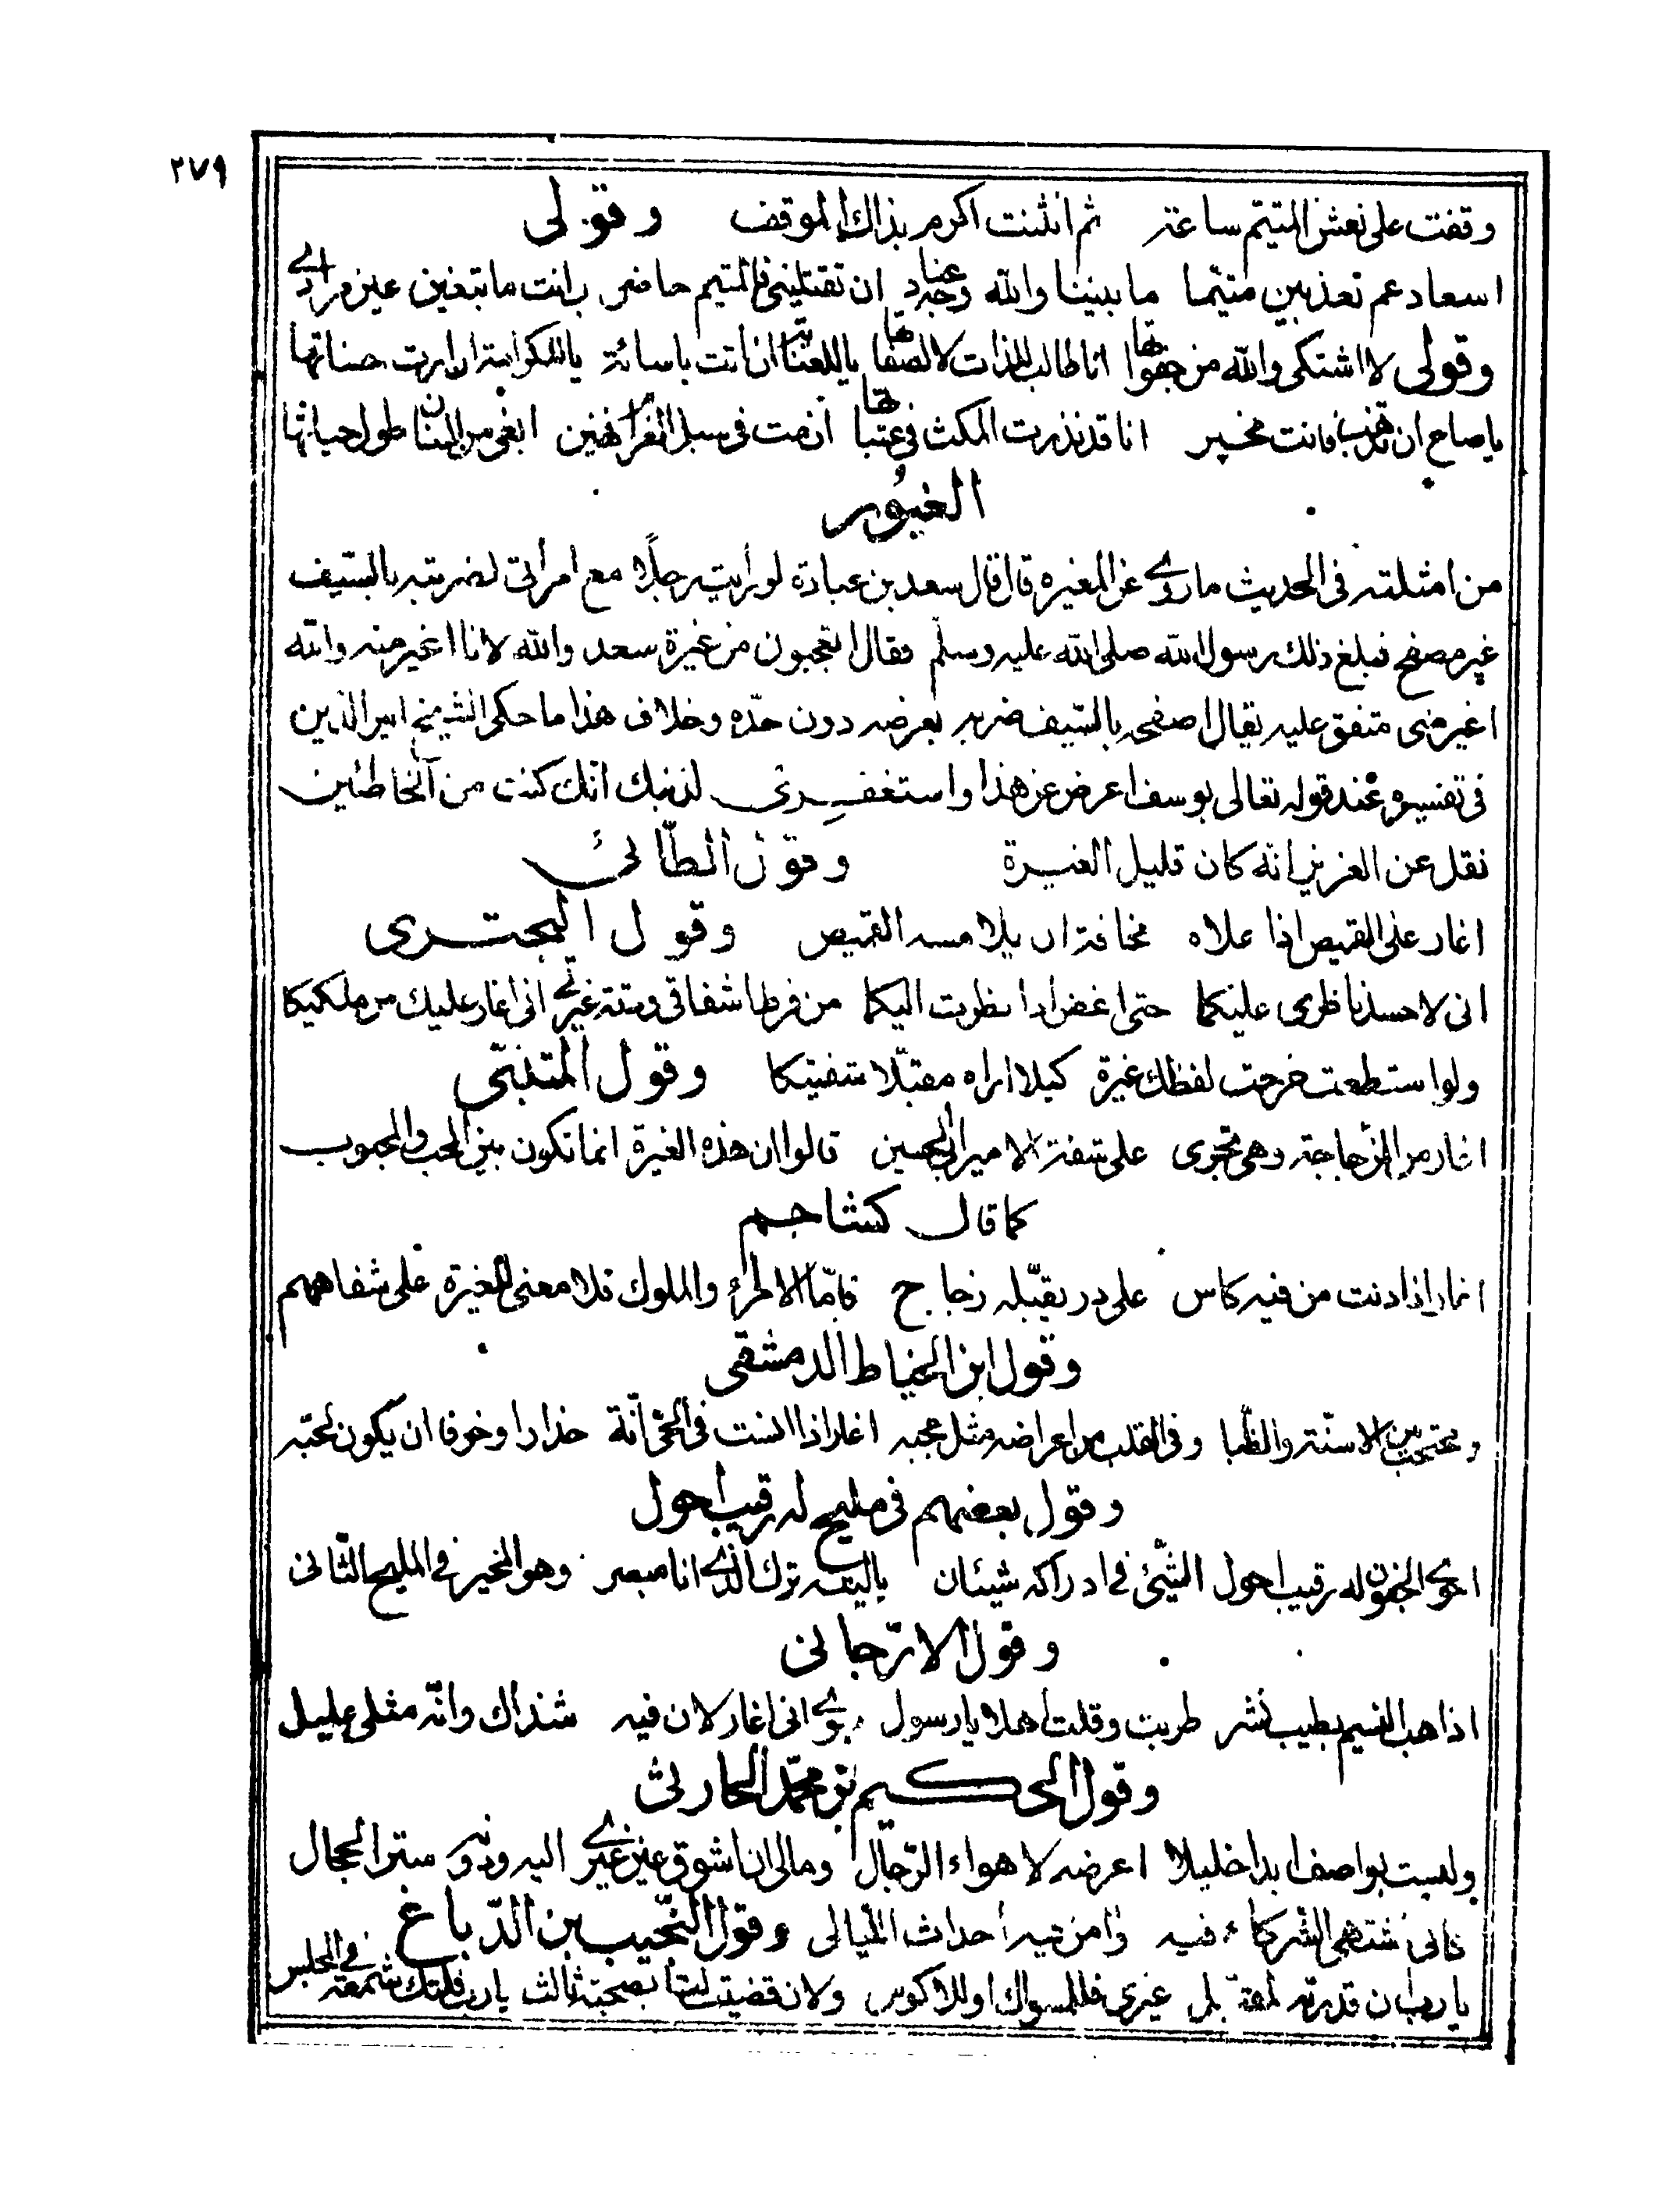 ٢٧٩
وقفت على نعش المتيم ساعة ثم انثنت اكرم بذاك الموقف وقولى
اسعاد عم تعذبين متيما ما بيننا والله وجه عناد ان تقتلينى فالمتيم حاضر بانت ما تبغين عين مرادى
وقولى لا اشتكى والله من جفواتها انا طالب للذات لا لصفاتها ان اتت باسائة
يا صاح ان تذهب فانت مخير انا قد نذرت المكث فى عتباتها ان مت فى سبل الغرام ابغى من المنان طول حياتها
الغيور
من امثلته فى الحديث ما روى عن المغيرة قال قال سعد بن عبادة لو رايت رجلًا مع امرأتى لضربته بالسيف
غير مصفح فبلغ ذلك رسول الله صلى الله عليه وسلم فقال اتعجبون من غيرة سعد والله لانا اغير منه والله
اغير منى متفق عليه يقال اصفحه بالسيف ضربه بعرضه دون حدّه وخلاف هذا ما حكى الشيخ اثير الدين
فى تفسيره عند قوله تعالى يوسف اعرض عن هذا واستغفرى لذنبك انك كنت من الخاطئين
نقل عن العزيز انه كان قليل الغيرة وقول الطّائى
اغار على القميص اذا علاه مخافة ان يلامسه القميص وقول البحترى
انى لاحسد ناظرى عليكما حتى اغض اذا نظرت اليكما من فرط اشفاقى ودقة غيرتى انى اغار عليك من ملكيكا
ولو استطعت خرجت لفظك غيرة كيلا اراه مقبّلا شفتيكا وقول المتنبّى
اغار من الزّجاجة وهى تجرى على شفة الامير ابى الحسين قالوا ان هذه الغيرة انما تكون بين المحب والمحبوب
كما قال كشاجم
اغار اذا دنت من فيه كاس على در يقبّله زجاج فامّا الامراء والملوك فلا معنى للغيرة على شفاههم
وقول ابن الخياط الدمشقى
ومحتجب بين الاسنّة والظّبا وفى القلب من اعراضه مثل حجبه اغار اذا انست فى الحى انّة حذارا وخوفا ان يكون لحبّه
وقول بعضهم فى مليح له رقيب احول
احوى الجفون له رقيب احول الشّئ فى ادراكه شيئان يا ليته ترك الذى انا مبصر وهو المخير فى المليح الثّانى
وقول الارّجانى
اذا هب النسيم بطيب نشر طربت وقلت اهلا يا رسول سوى انى اغار لان فيه شذاك وانّه مثلى عليل
وقول الحكيم بن محمّد الحارثى
ولست بواصف ابدا خليلا اعرضه لاهواء الرّجال ومالى ان اشوق عين غيرى اليه ودونه ستر الحجال
كانى اشتهى الشركاء فيه وآمن فيه أحداث اللّيالى وقول النّجيب بن الدّباغ
يا رب ان قدرته لمقبّل غيرى فللمسواك او للاكوس ولان قضيت لنا بصحبة ثالث يا رب فلتك شمعة فى المجلس